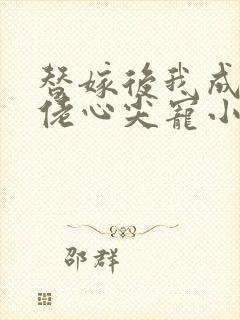 替嫁後我成
佬心尖寵小
邵群